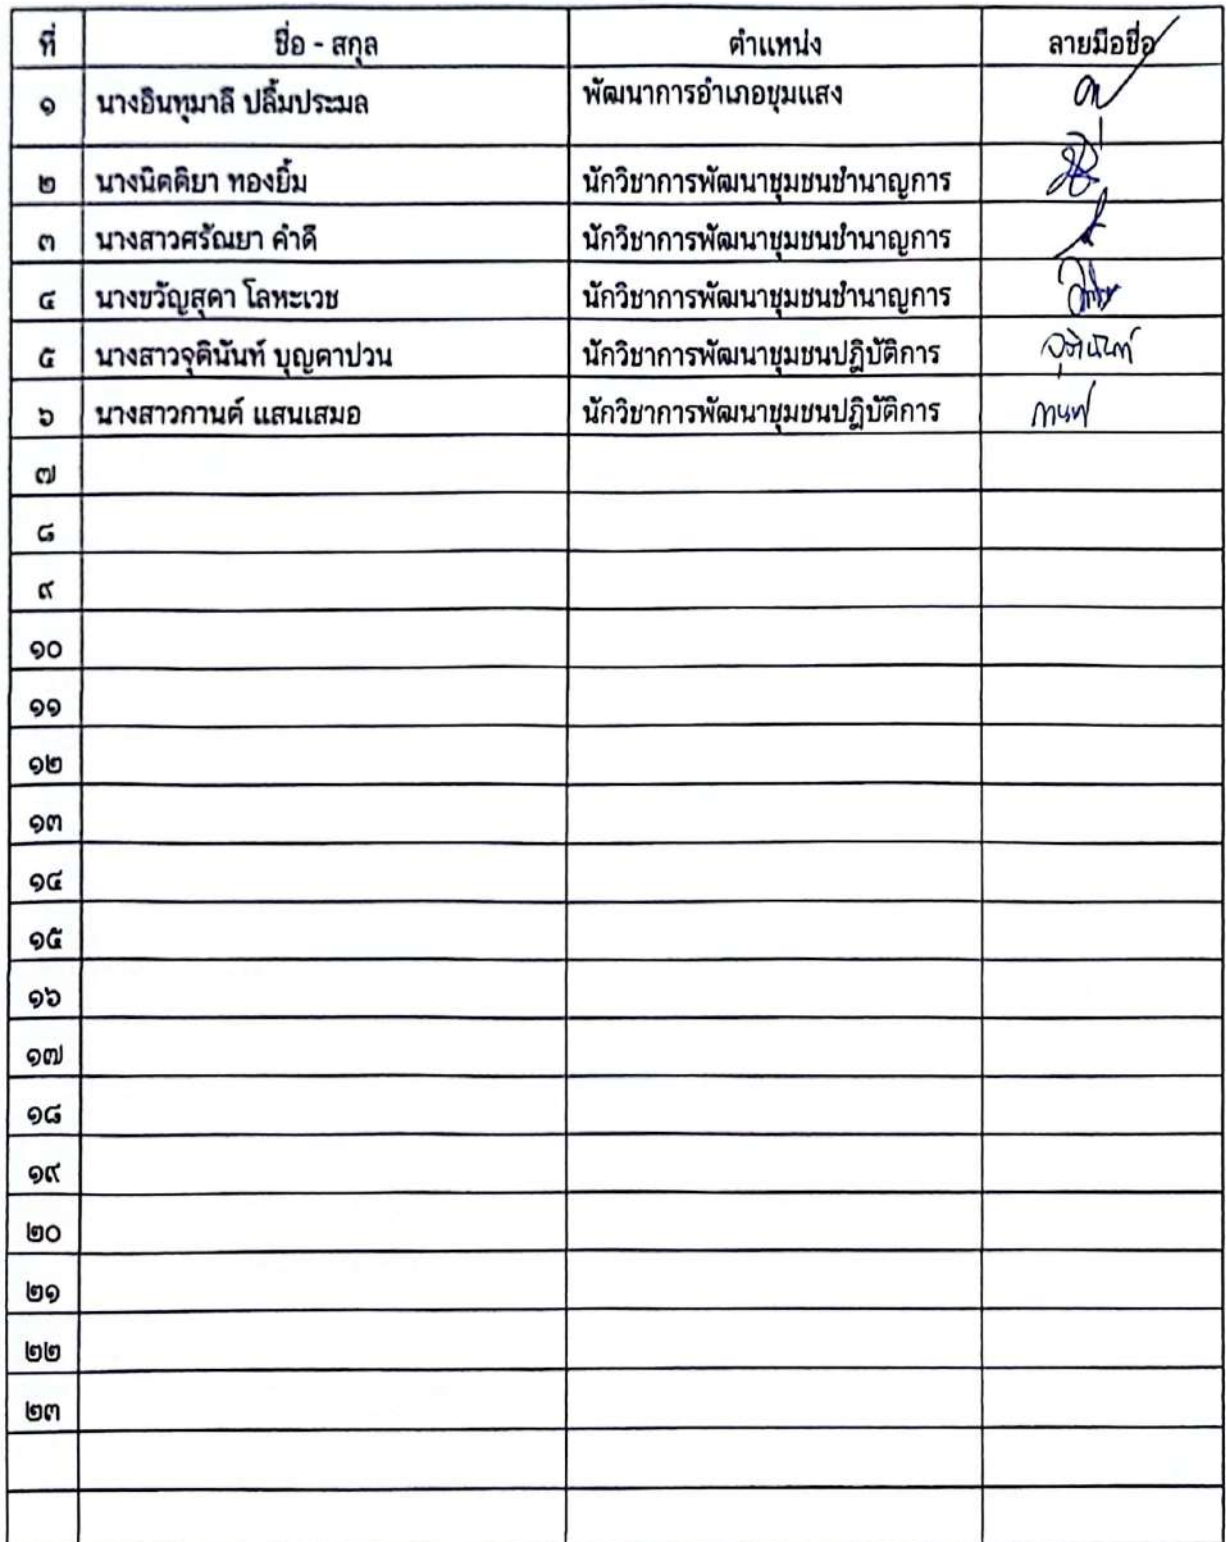 ที่ ชื่อ - สกุล ตำแหน่ง ลายมือชื่อ
๑ นางอินทุมาลี ปลื้มประมล พัฒนาการอำเภอชุมแสง
๒ นางนิตติยา ทองยิ้ม นักวิชาการพัฒนาชุมชนชำนาญการ
๓ นางสาวศรัณยา คำดี นักวิชาการพัฒนาชุมชนชำนาญการ
๔ นางขวัญสุดา โลหะเวช นักวิชาการพัฒนาชุมชนชำนาญการ
๕ นางสาวจุตินันท์ บุญตาปวน นักวิชาการพัฒนาชุมชนปฏิบัติการ จุตินันท์
๖ นางสาวกานต์ แสนเสมอ นักวิชาการพัฒนาชุมชนปฏิบัติการ กานต์
๗
๘
๙
๑๐
๑๑
๑๒
๑๓
๑๔
๑๕
๑๖
๑๗
๑๘
๑๙
๒๐
๒๑
๒๒
๒๓